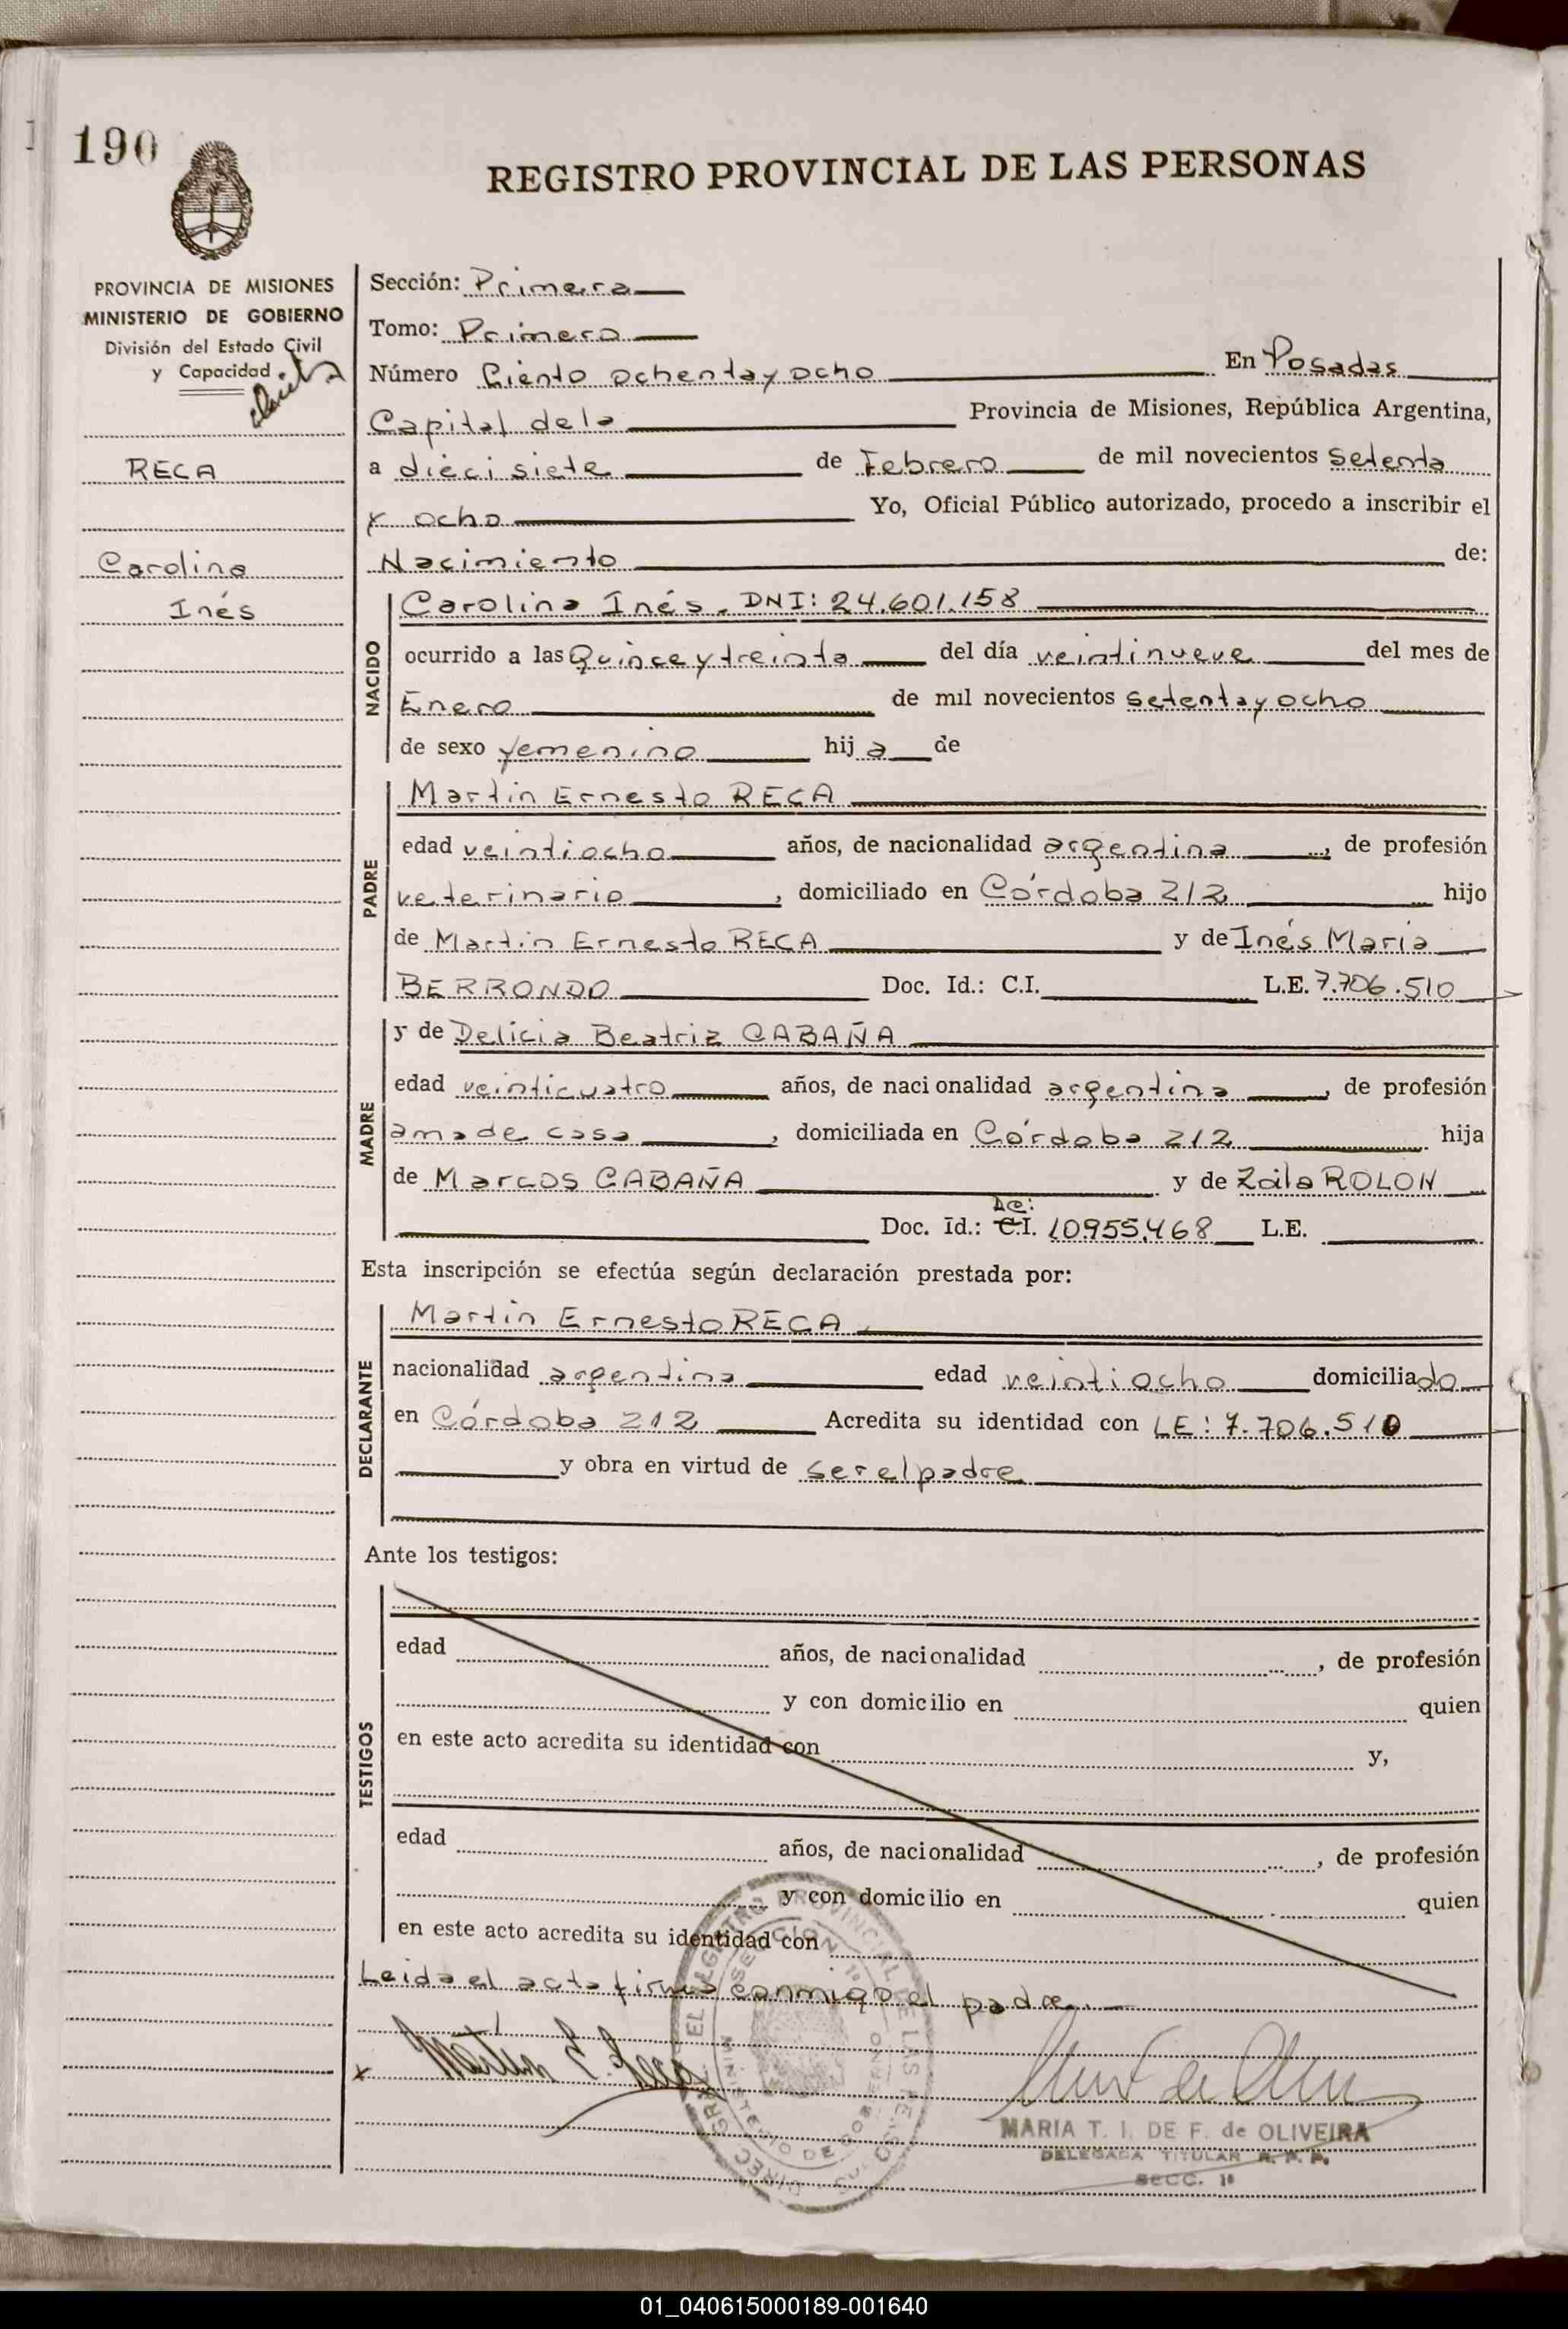 190
REGISTRO PROVINCIAL DE LAS PERSONAS
PROVINCIA DE MISIONES
MINISTERIO DE GOBIERNO
División del Estado Civil
y Capacidad
RECA
Carolina
Inés
Sección: Primera
Tomo: Primero
Número Ciento ochenta y ocho En Posadas
Capital de la Provincia de Misiones, República Argentina,
a diecisiete de Febrero de mil novecientos setenta
y ocho Yo, Oficial Público autorizado, procedo a inscribir el
Nacimiento de:
NACIDO
Carolina Inés. DNI: 24.601.158
ocurrido a las Quince y treinta del día veintinueve del mes de
Enero de mil novecientos setenta y ocho
de sexo femenino hija de
PADRE
Martin Ernesto RECA
edad veintiocho años, de nacionalidad argentina, de profesión
veterinario, domiciliado en Córdoba 212 hijo
de Martin Ernesto RECA y de Inés María
BERRONDO Doc. Id.: C.I. L.E. 7.706.510
MADRE
y de Delicia Beatriz CABAÑA
edad veinticuatro años, de nacionalidad argentina, de profesión
ama de casa, domiciliada en Córdoba 212 hija
de Marcos CABAÑA y de Zaila ROLON
Doc. Id.: C.I. 10.955.468 L.E.
Esta inscripción se efectúa según declaración prestada por:
DECLARANTE
Martin Ernesto RECA
nacionalidad argentina edad veintiocho domiciliado
en Córdoba 212 Acredita su identidad con LE: 7.706.510
y obra en virtud de ser el padre
Ante los testigos:
TESTIGOS
edad años, de nacionalidad , de profesión
y con domicilio en quien
en este acto acredita su identidad con y,
edad años, de nacionalidad , de profesión
y con domicilio en quien
en este acto acredita su identidad con
Leida el acta firma conmigo el padre.
x Martín E. Reca
MARIA T. I. DE F. de OLIVEIRA
DELEGADA TITULAR R. P. P.
SECC. 1ª
REGISTRO PROVINCIAL DE LAS PERSONAS
SECCION 1ª
MINISTERIO DE GOBIERNO
01_040615000189-001640